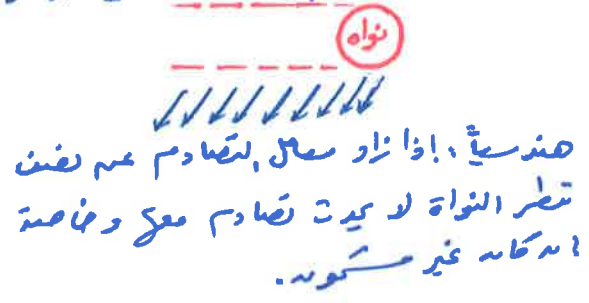 نواه
هندسياً، إذا زاد معامل التصادم عن نصف
قطر النواة لا يحدث تصادم معها وخاصة
إن كان غير مشحون.